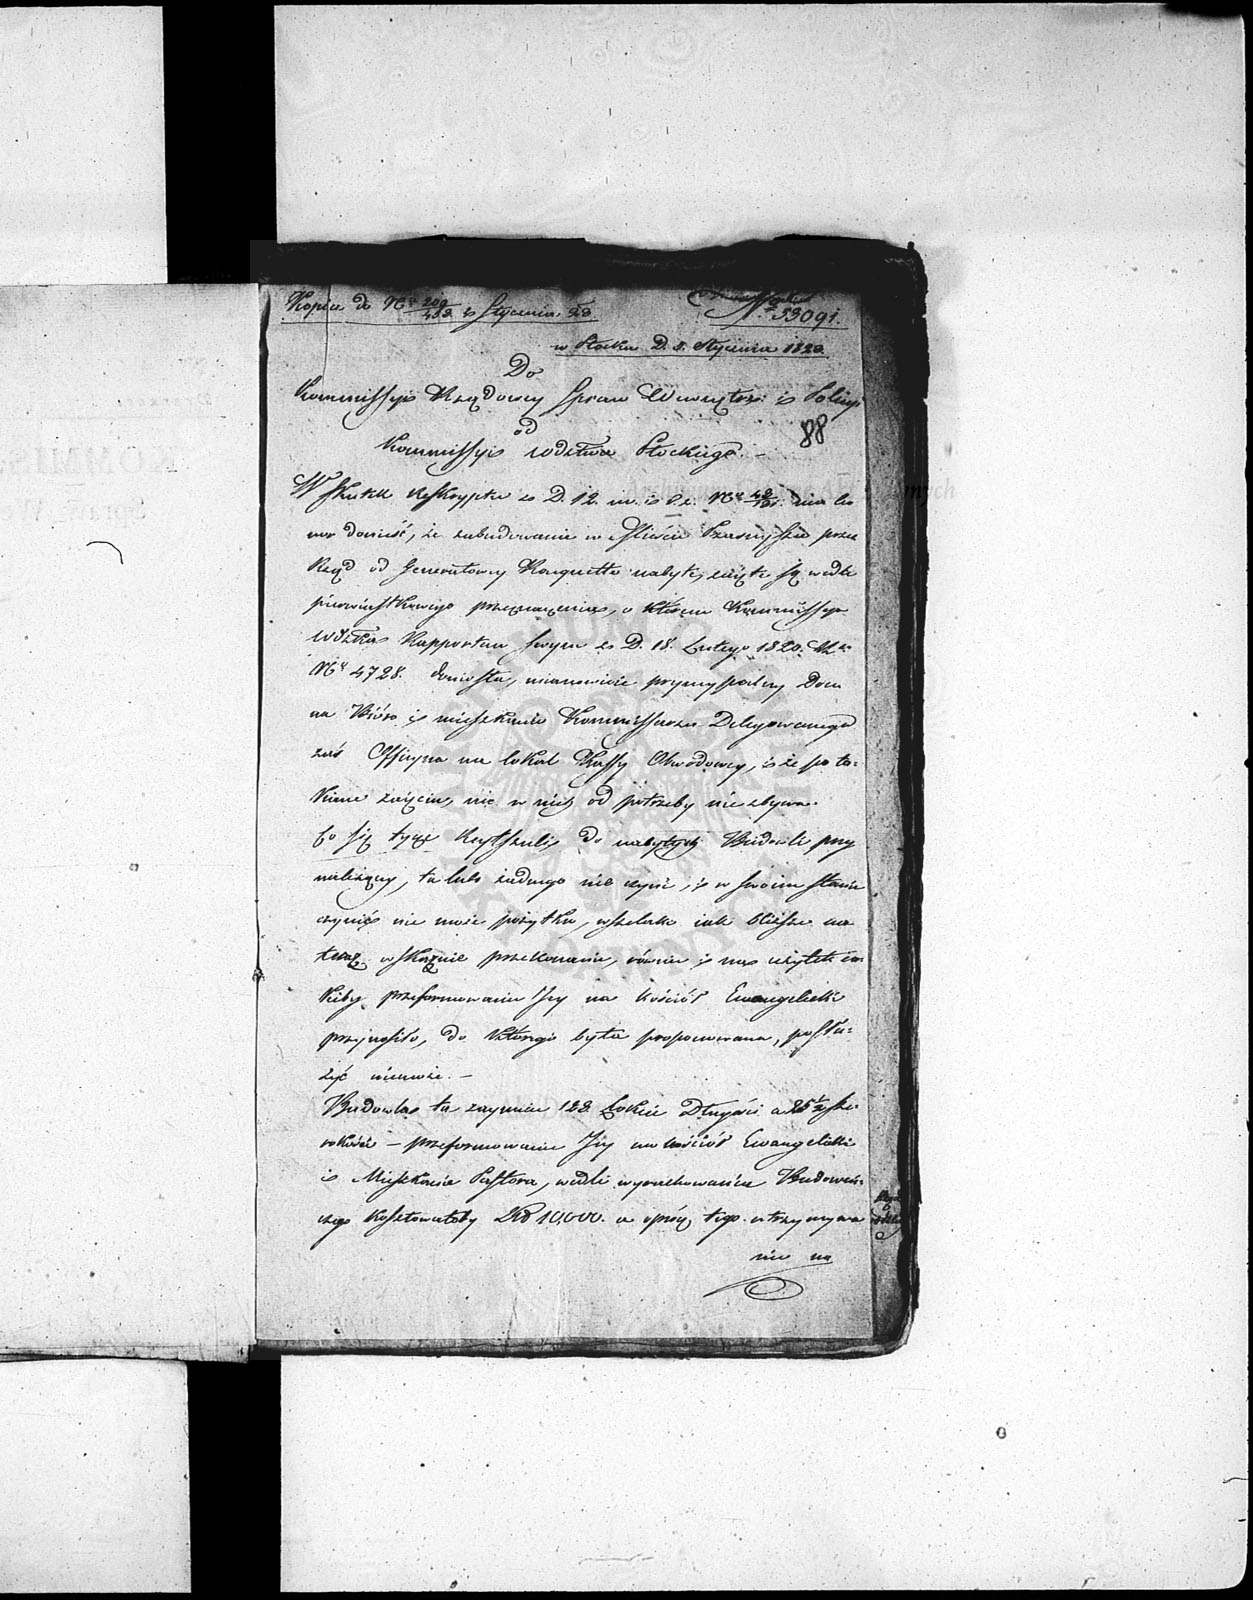 Kopia do Nru 209/453 z Stycznia 23.
No 53091.
w Płocku D. 8. Stycznia 1823.
Do
Kommissyi Rządowey Spraw Wewnętrz: i Policyi
88
od
Kommissyi Wdztwa Płockiego. –
W skutku Reskryptu z D. 12. m. i r. z. Nru ma ho
nor donieść, że zabudowanie w Mieście Przasnyszu przez
Rząd od Generałowey Rouquette nabyte, zaięte są wedle
pierwiastkowego przeznaczenia, o którem Kommissya
Wdzka Rapportem swym z D. 18. Lutego 1820.
Nru 4728. doniosła, mianowicie pryncypalny Dom
na Bióro i mieszkanie Kommissarza Delegowanego
zaś Officyna na lokal Kassy Obwodowey, i że po ta-
kiem zaięciu, nic w nich od potrzeby nie zbywa.
Co się tycze Reytszuli do nabytych Budowli przy
należącey, ta lubo żadnego nie czyni, i w swoim stanie
czynić nie może pożytku, wszelako iak bliższe na
teraz wskazuie przekonanie, równie i na użytek ia-
kiby przeformowanie Jey na kościół Ewangelicki
przynosiło, do którego była proponowana, posłu-
żyć niemoże. –
Budowla ta zaymuie 123 Łokcie Długości a 25½ sze-
rokości – przeformowanie Jey na kościół Ewangelicki
i Mieszkanie Pastora, wedle wyrachowania Budowni-
czego kosztowałoby Złp 10,000. a oprócz tego utrzymywa
nie na